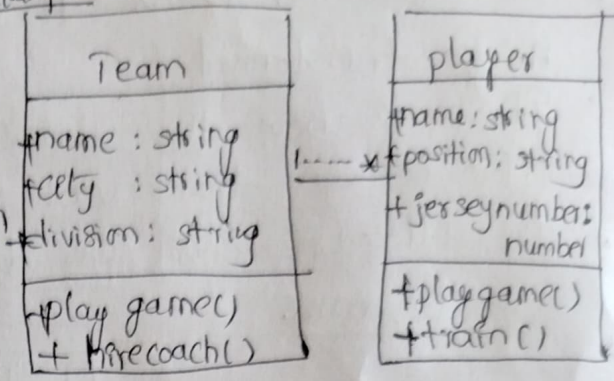 Team
+name : string
+city : string
+division : string
+play game()
+ hirecoach()
1......*
player
+name: string
+position: string
+jerseynumber:
number
+playgame()
+train()